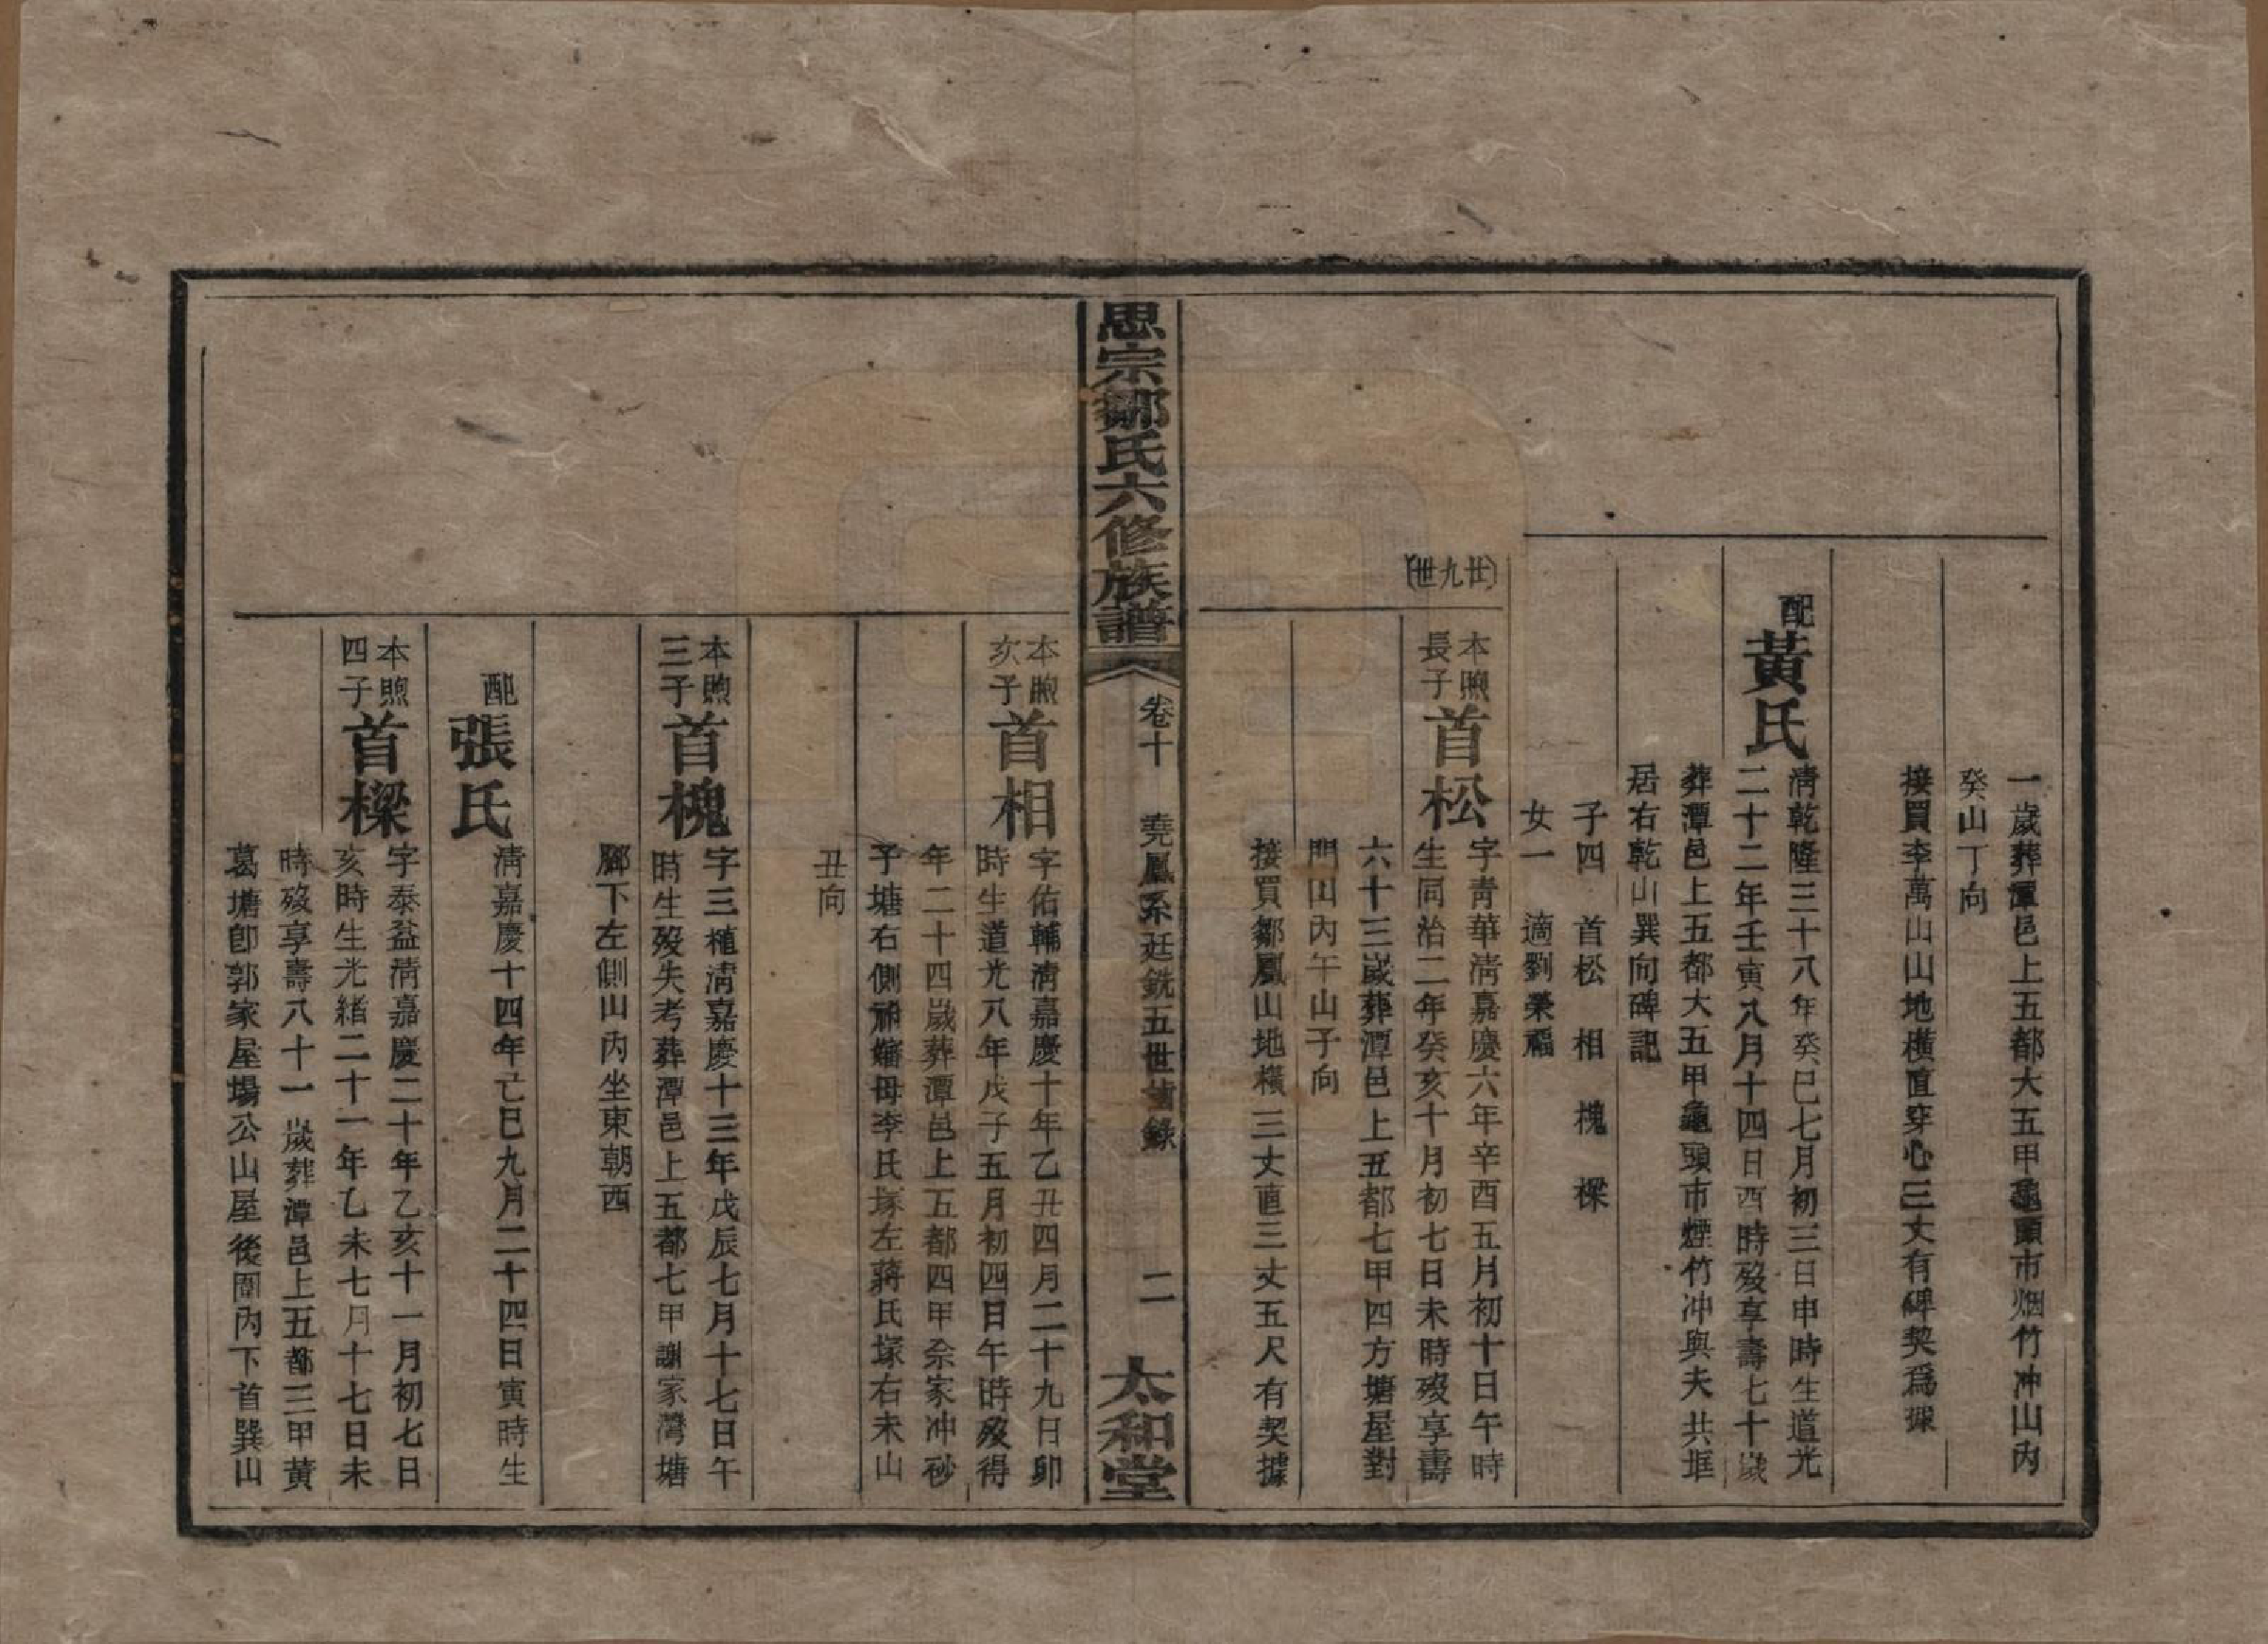 一歲葬潭邑上五都大五甲龜頭市烟竹冲山內
癸山丁向
接買李萬山山地橫直穿心三丈有碑契爲據
配黃氏
清乾隆三十八年癸巳七月初三日申時生道光
二十二年壬寅八月十四日酉時歿享壽七十歲
葬潭邑上五都大五甲龜頭市煙竹冲與夫共堆
居右乾山巽向碑記
子四 首松 相 槐 樑
女一 適劉榮福
廿九世
本煦長子首松
字青華清嘉慶六年辛酉五月初十日午時
生同治二年癸亥十月初七日未時歿享壽
六十三歲葬潭邑上五都七甲四方塘屋對
門山內午山子向
接買鄒鳳山地橫三丈直三丈五尺有契據
思宗鄒氏六修族譜
卷十 堯鳳系廷銑五世齒錄 二
太和堂
本煦次子首相
字佑輔清嘉慶十年乙丑四月二十九日卯
時生道光八年戊子五月初四日午時歿得
年二十四歲葬潭邑上五都四甲佘家冲砂
子塘右側祔嬸母李氏塚左蔣氏塚右未山
丑向
本煦三子首槐
字三植清嘉慶十三年戊辰七月十七日午
時生歿失考葬潭邑上五都七甲謝家灣塘
腳下左側山內坐東朝西
配張氏
清嘉慶十四年己巳九月二十四日寅時生
本煦四子首樑
字泰益清嘉慶二十年乙亥十一月初七日
亥時生光緒二十一年乙未七月十七日未
時歿享壽八十一歲葬潭邑上五都三甲黃
葛塘卽郭家屋場公山屋後圍內下首巽山